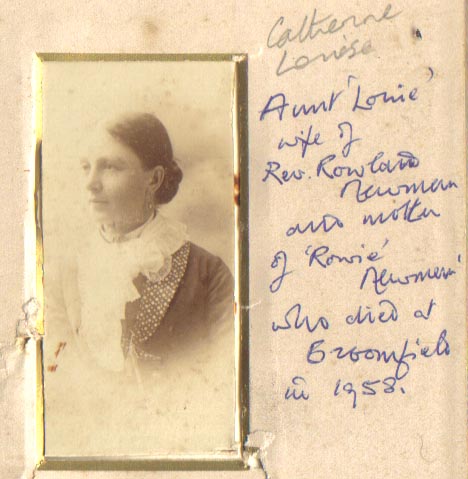 Catherine
Louise
Aunt 'Louie'
wife of
Rev. Rowland
Newman
and mother
of 'Rowie'
Newman
who died at
Broomfield
in 1958.